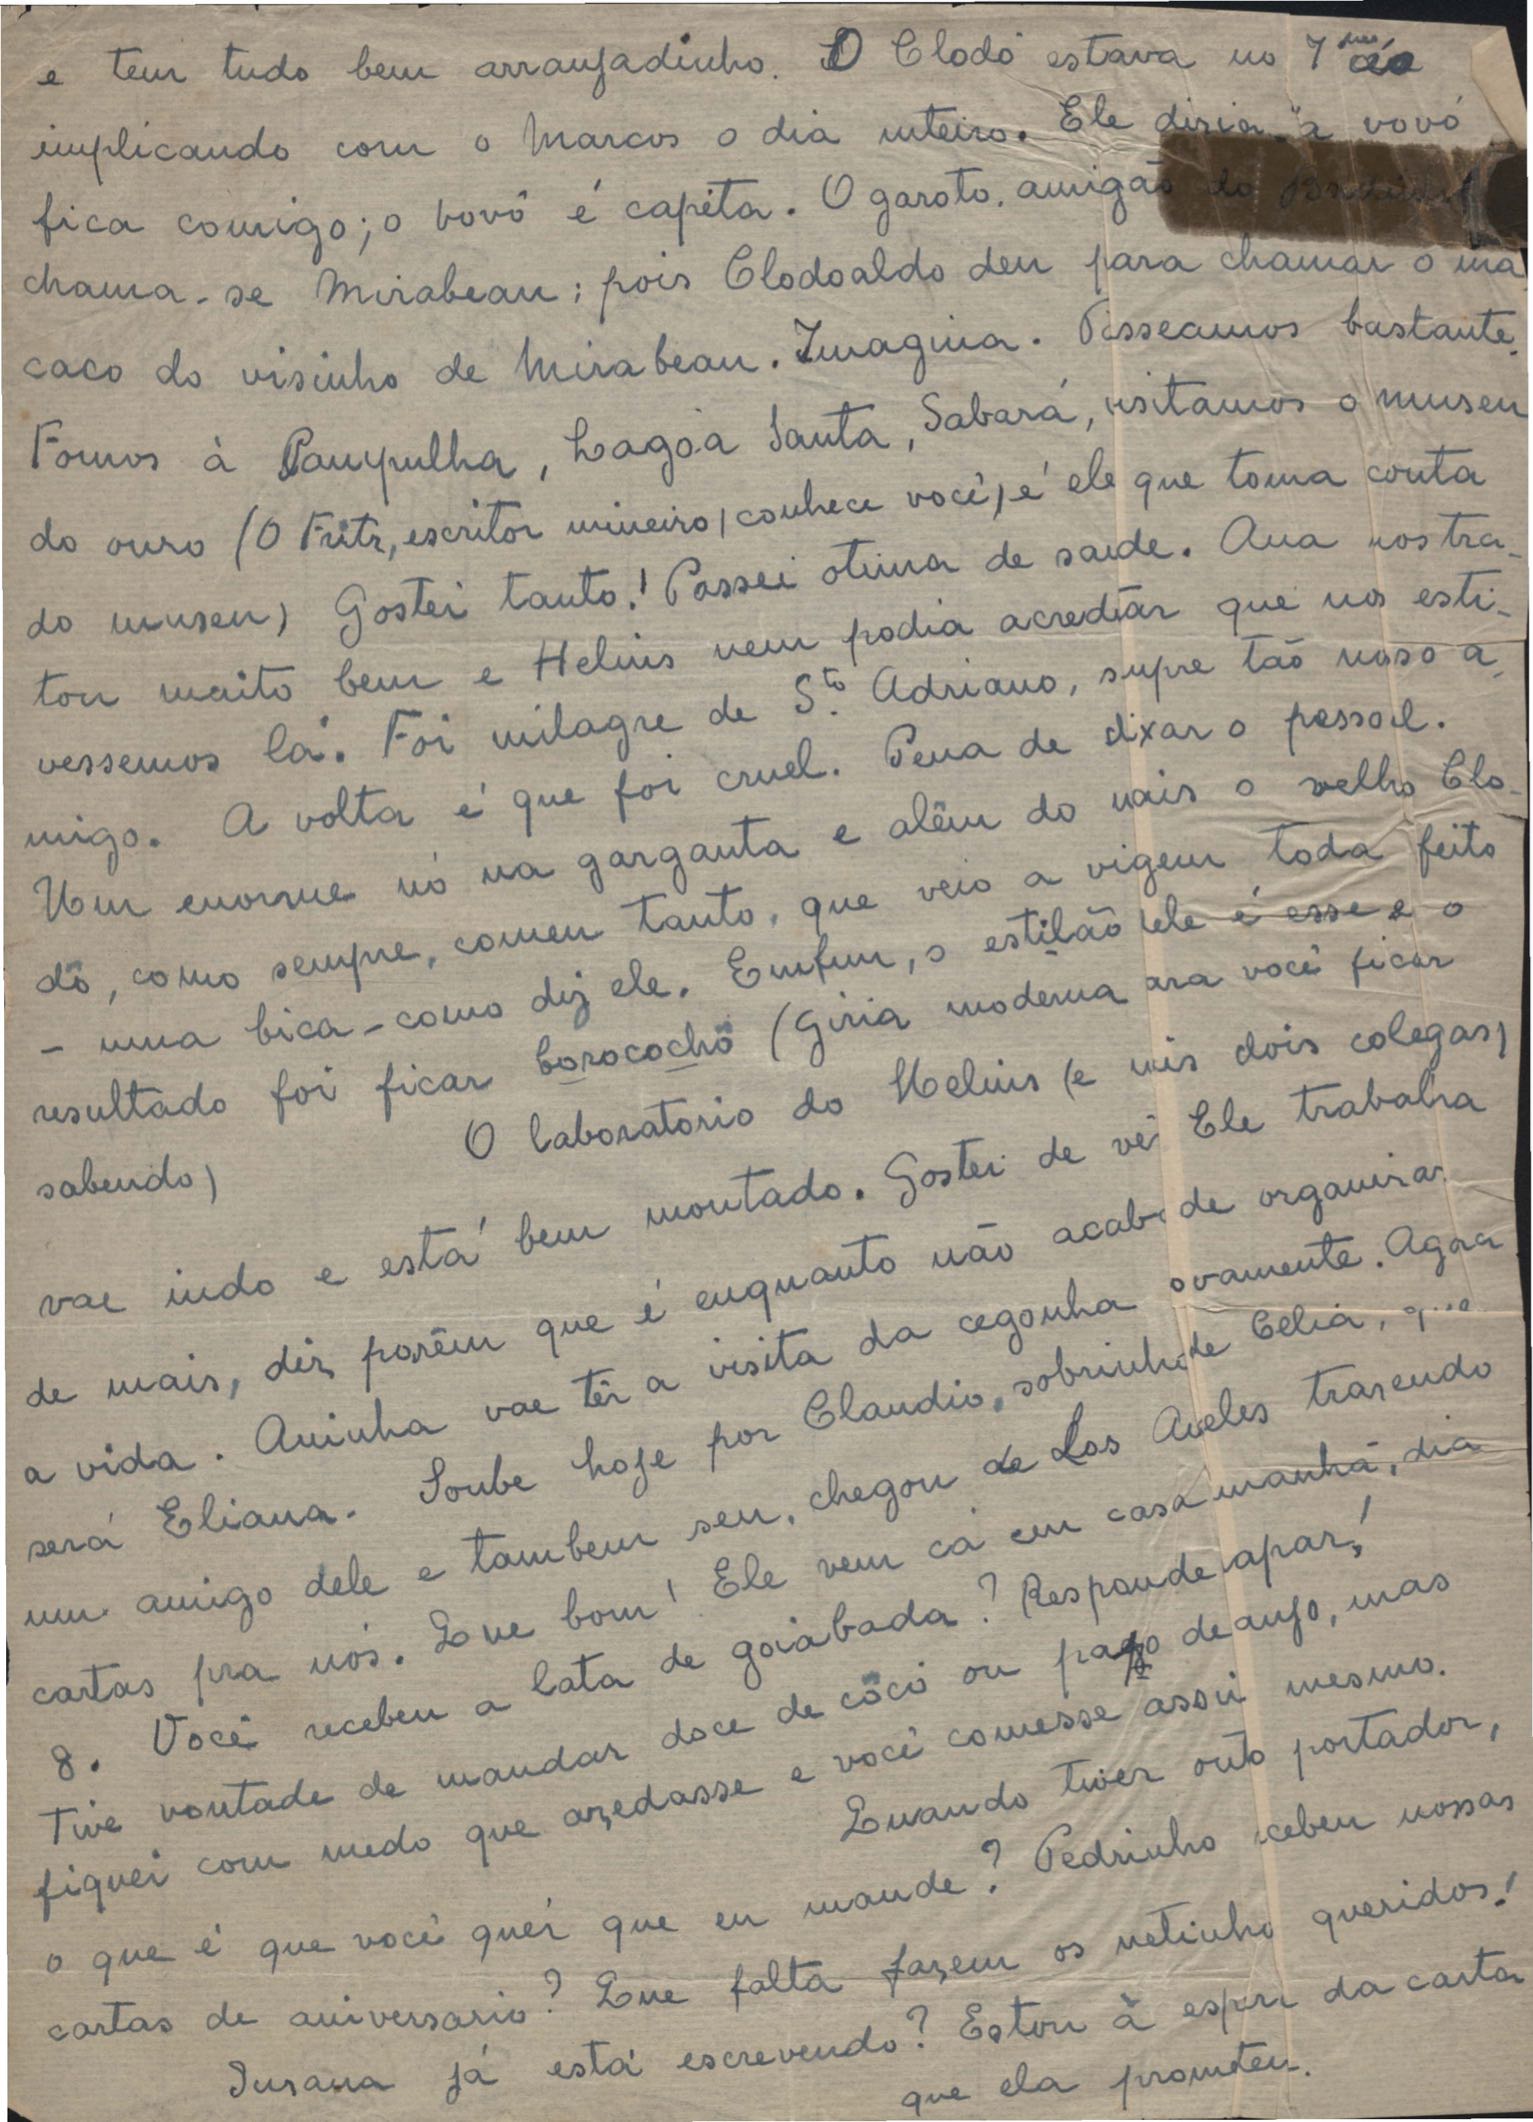 e tem tudo bem arranjadinho. O Clodô estava no 7mo céo
implicando com o Marcos o dia inteiro. Ele disia "a vovó
fica comigo; o vovô é capéta. O garoto, amigão do
chama-se Mirabeau; pois Clodoaldo deu para chamar o ma
caco do visinho de Mirabeau. Imagina. Passeamos bastante.
Fomos à Pampulha, Lagôa Santa, Sabará, visitamos o museu
do ouro (O Fritz, escritor mineiro, conhece você, é ele que toma conta
do museu) Gostei tanto! Passei otima de saude. Ana nos tra-
tou muito bem e Helius nem podia acreditar que nos esti-
vessemos lá. Foi milagre de Sto. Adriano, supre tão noso a-
migo. A volta é que foi cruel. Pena de dixar o pessoal.
Um enorme nó na garganta e alêm do mais o velho Clo-
dô, como sempre, comeu tanto, que veio a vigem toda feito
- uma bica - como diz ele. Emfim, o estilão dele é esse e o
resultado foi ficar borocochô (Giria moderna ara você ficar
sabendo) O laboratorio do Helius (e mis dois colegas)
vae indo e está bem montado. Gostei de vê Ele trabalha
de mais, diz, porêm que é enquanto não acab de organizar
a vida. Aninha vae têr a visita da cegonha ovamente. Agora
será Eliana. Soube hoje por Claudio, sobrinho de Celia, que
um amigo dele e tambem seu, chegou de Los Aeles trazendo
cartas pra nós. Que bom! Ele vem cá em casa manhã, dia
8. Você recebeu a lata de goiabada? Responde apar!
Tive vontade de mandar doce de côco ou papo de anjo, mas
fiquei com medo que azedasse e você comesse assi mesmo.
Quando tiver outo portador,
o que é que você quér que eu mande? Pedrinho ecebeu nossas
cartas de aniversario? Que falta fazem os netinho queridos!
Susana já está escrevendo? Estou à espera da carta
que ela prometeu.